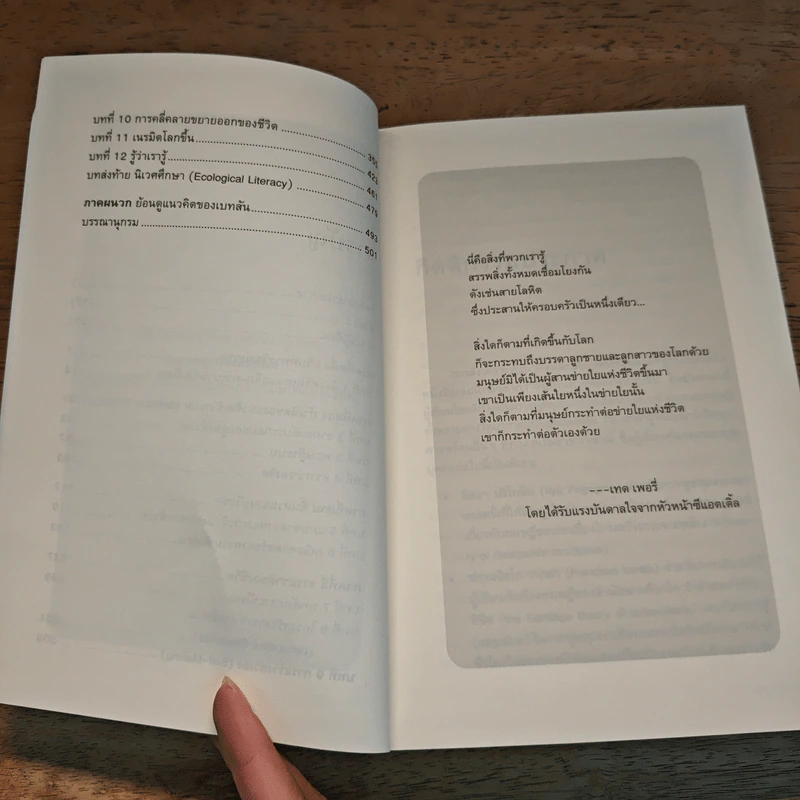 บทที่ 10 การคลี่คลายขยายออกของชีวิต
บทที่ 11 เนรมิตโลกขึ้น 423
บทที่ 12 รู้ว่าเรารู้ 461
บทส่งท้าย นิเวศศึกษา (Ecological Literacy) 479
ภาคผนวก ย้อนดูแนวคิดของเบทสัน 493
บรรณานุกรม 501
นี่คือสิ่งที่พวกเรารู้
สรรพสิ่งทั้งหมดเชื่อมโยงกัน
ดังเช่นสายโลหิต
ซึ่งประสานให้ครอบครัวเป็นหนึ่งเดียว...
สิ่งใดก็ตามที่เกิดขึ้นกับโลก
ก็จะกระทบถึงบรรดาลูกชายและลูกสาวของโลกด้วย
มนุษย์มิได้เป็นผู้สานข่ายใยแห่งชีวิตขึ้นมา
เขาเป็นเพียงเส้นใยหนึ่งในข่ายใยนั้น
สิ่งใดก็ตามที่มนุษย์กระทำต่อข่ายใยแห่งชีวิต
เขาก็กระทำต่อตัวเองด้วย
---เทด เพอรี่
โดยได้รับแรงบันดาลใจจากหัวหน้าซีแอตเติ้ล